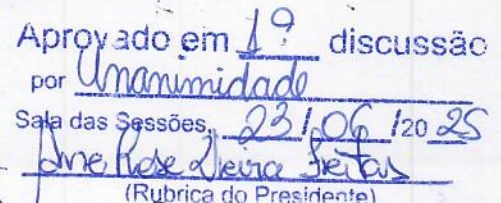 Aprovado em 1ª discussão
por Unanimidade
Sala das Sessões, 23/06/2025
Rose Vieira Freitas
(Rubrica do Presidente)